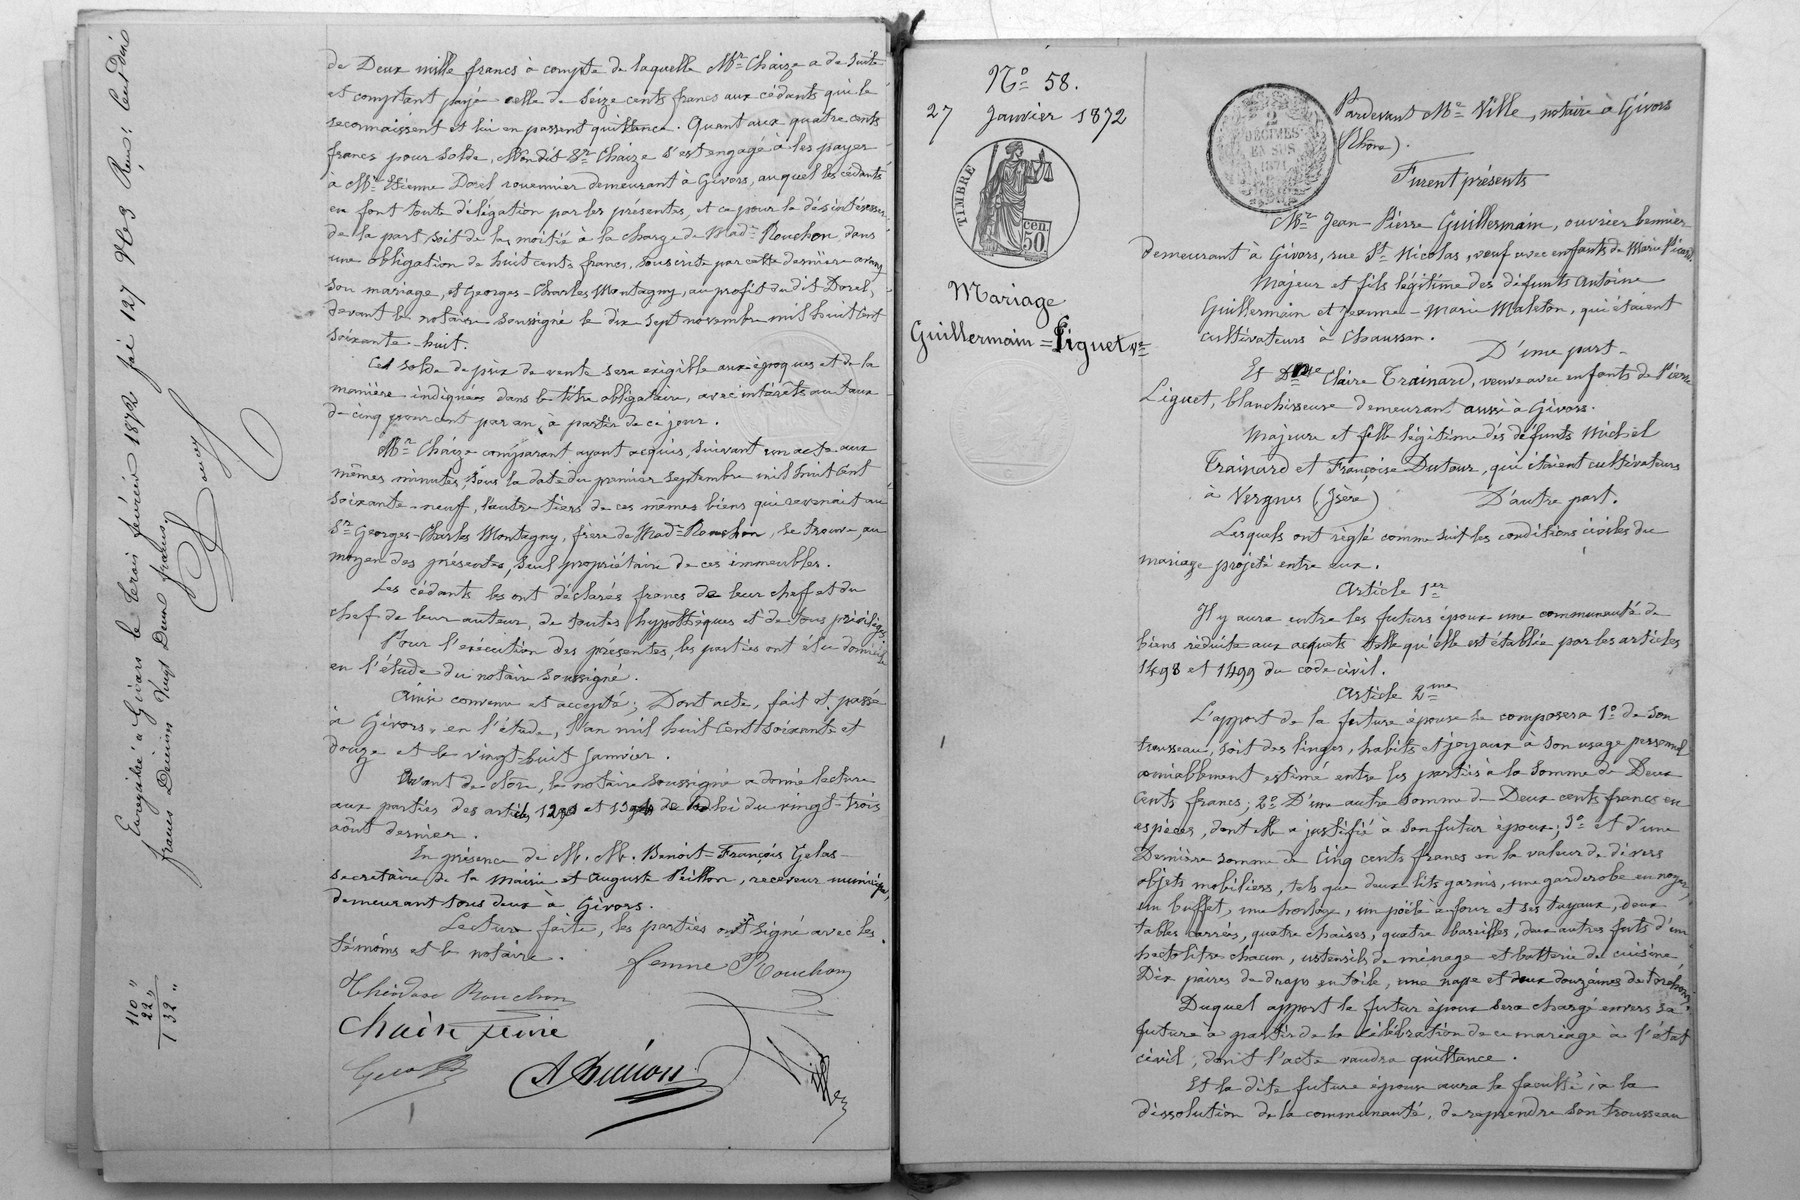 de Deux mille francs à compte de laquelle Mr Chaize a de suite
et comptant payé celle de Seize cents francs aux cédants qui le
reconnaissent et lui en passent quittance. Quant aux quatre cents
francs pour solde, mon dit Sr Chaize s'est engagé à les payer
à Mr Etienne Dorel rouennier demeurant à Givors, auquel les cédants
en font toute délégation par les présentes, et ce pour le désintéresser
de la part soit de la moitié à la charge de Made Rouchon, dans
une obligation de huit cents francs, souscrite par cette dernière avant
son mariage, et Georges-Charles Montagny, au profit du dit Dorel,
devant le notaire soussigné le dix sept novembre mil huit cent
soixante-huit.
Cet solde de prix de vente sera exigible aux époques et de la
manière indiquées dans le titre obligatoire, avec intérêts au taux
de cinq pour cent par an, à partir de ce jour.
Mr Chaize comparant ayant acquis, suivant un acte aux
mêmes minutes, sous la date du premier septembre mil huit cent
soixante-neuf, l'autre tiers de ces mêmes biens qui revenait au
Sr Georges-Charles Montagny, frère de Made Rouchon, se trouve, au
moyen des présentes, seul propriétaire de ces immeubles.
Les cédants les ont déclarés francs de leur chef et du
chef de leur auteur, de toutes hypothèques et de tous privilèges.
Pour l'exécution des présentes, les parties ont élu domicile
en l'étude du notaire soussigné.
Ainsi convenu et accepté; Dont acte, fait et passé
à Givors, en l'étude, l'an mil huit cent soixante et
douze et le vingt-huit Janvier.
Avant de clore, le notaire soussigné a donné lecture
aux parties des articles et de la loi du vingt-trois
aôut dernier.
En présence de M. M. Benoit-François Gelas
secrétaire de la Mairie et Auguste Peillon, receveur municipal,
demeurant tous deux à Givors.
Lecture faite, les parties ont signé avec les
témoins et le notaire.
femme Rouchon
Théodore Rouchon
Chaize
Gelas
Enregistré à Givors le trois février 1872 fo 127 Reçu: Cent dix
francs Décimes Vingt Deux francs.
110 "
22 "
132 "
No 58.
27 Janvier 1872
TIMBRE
50 cen.
Mariage
Guillermain = Liguet Ve
2
DÉCIMES
EN SUS
1871
Pardevant Me Ville, notaire à Givors
(Rhône).
Furent présents
Mr Jean-Pierre Guillermain, ouvrier
demeurant à Givors, rue St Nicolas, veuf avec enfants de Marie
Majeur et fils légitime des défunts Antoine
Guillermain et Jeanne-Marie Maleton, qui étaient
cultivateurs à Chaussan.
D'une part
Et Dme Claire Trainard, veuve avec enfants de Pierre
Liguet, blanchisseuse demeurant aussi à Givors.
Majeure et fille légitime des défunts Michel
Trainard et Françoise Dutour, qui étaient cultivateurs
à Vergnes (Isère)
D'autre part.
Lesquels ont réglé comme suit les conditions civiles du
mariage projeté entre eux.
Article 1er
Il y aura entre les futurs époux une communauté de
biens réduite aux acquets telle qu'elle est établie par les articles
1498 et 1499 du code civil.
Article 2me
L'apport de la future épouse se composera 1o de son
trousseau, soit des linges, habits et joyaux à son usage personnel
amiablement estimé entre les parties à la somme de Deux
Cents francs; 2o D'une autre somme de Deux cents francs en
espèces, dont elle a justifié à son futur époux; 3o et d'une
Dernière somme de Cinq cents francs en la valeur de divers
objets mobiliers, tels que deux lits garnis, une garderobe en noyer,
un buffet, une horloge, un poële à four et ses tuyaux, deux
tables carrées, quatre chaises, quatre barilles, deux autres futs d'un
hectolitre chacun, ustensiles de ménage et batterie de cuisine,
Dix paires de draps en toile, une nappe et deux douzaines de torchons.
Duquel apport le futur époux sera chargé envers sa
future à partir de la célébration de ce mariage à l'état
civil, dont l'acte vaudra quittance.
Et la dite future épouse aura la faculté, à la
dissolution de la communauté, de reprendre son trousseau